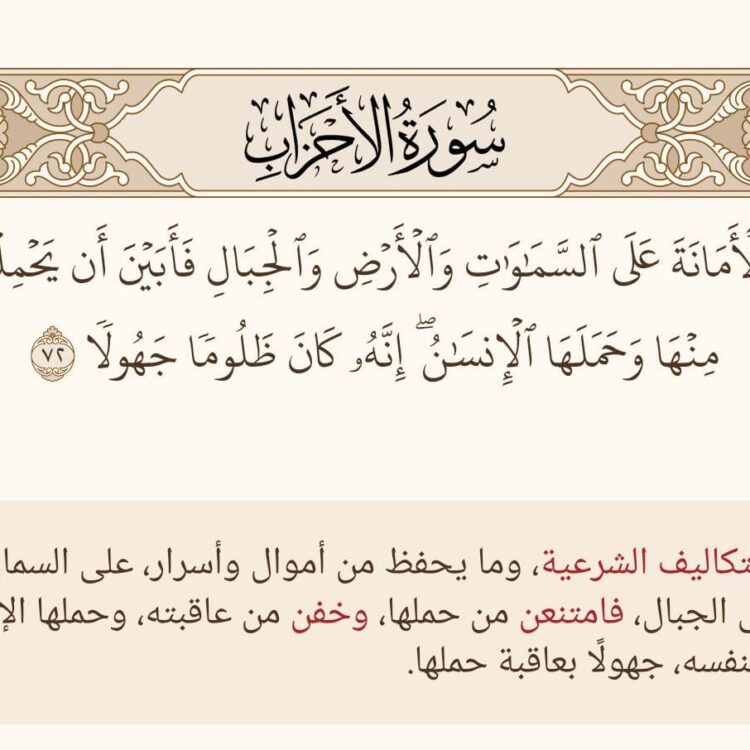 سُورَةُ الأَحْزَابِ
عَلَى ٱلسَّمَٰوَٰتِ وَٱلْأَرْضِ وَٱلْجِبَالِ فَأَبَيْنَ أَن
مِنْهَا وَحَمَلَهَا ٱلْإِنسَٰنُۖ إِنَّهُۥ كَانَ ظَلُومًا جَهُولًا ٧٢
الشرعية، وما يحفظ من أموال وأسرار، على
الجبال، فامتنعن من حملها، وخفن من عاقبته، وحملها
جهولًا بعاقبة حملها.